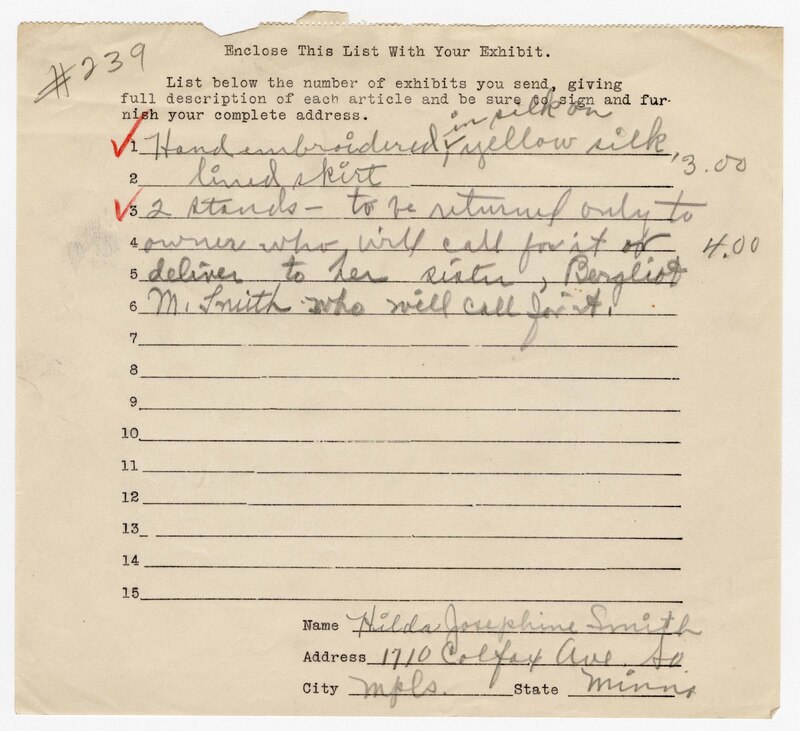 #239
Enclose This List With Your Exhibit.
List below the number of exhibits you send, giving
full description of each article and be sure to sign and fur-
nish your complete address.
in silk on
1 Hand embroidered, yellow silk, 3.00
2 lined skirt
3 2 stands - to be returned only to
4 owner who will call for it or 4.00
5 deliver to her sister, Bergliot
6 M. Smith who will call for it.
7
8
9
10
11
12
13
14
15
Name Hilda Josephine Smith
Address 1710 Colfax Ave. So
City Mpls. State Minn.